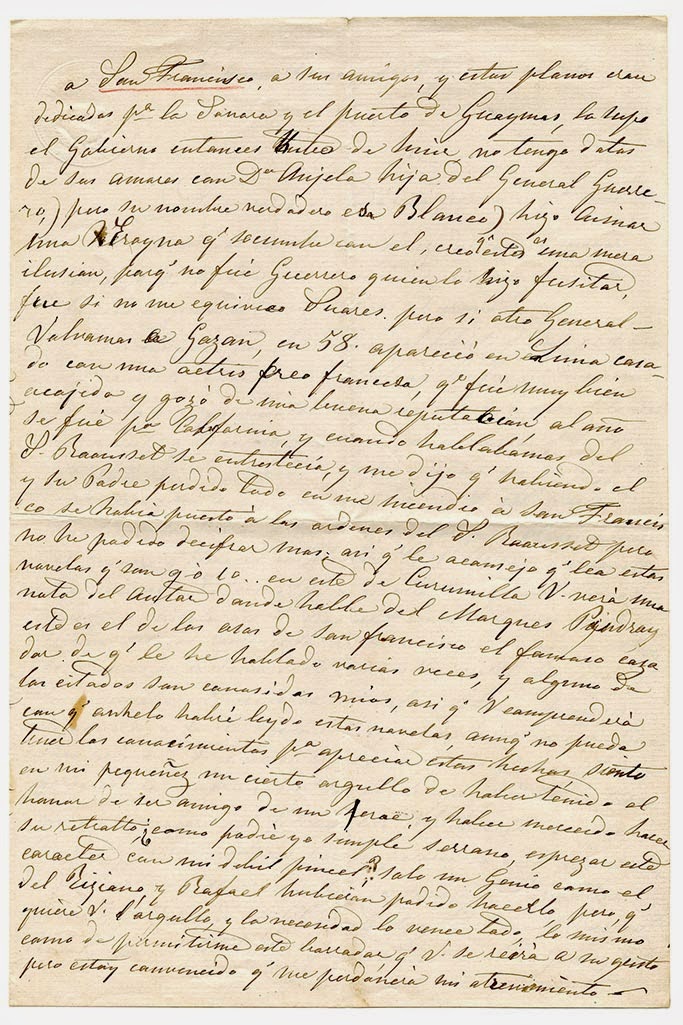 a San Francisco, a sus amigos, y estos planos eran
dedicados pª la Sonora y el puerto de Guaymas, lo supo
el Gobierno entonces de no tengo datos
de sus amores con Dª Anjela hija del General Guerre-
ro,) pero su nombre verdadero era Blanco) hizo
una q' socumbe con el, creo q' esto es una mera
ilusion, porq' no fué Guerrero quien lo hizo fusilar,
fue si no me equivoco Suares. pero si otro General-
Valvamas a Gazan, en 58. apareció en Lima casa-
do con una actris freo francesa, q' fué muy bien
acojida y gozó de una buena reputacion al año
se fué pª California, y cuando hablabamos del
S. Raousset se entrestecia, y me dijo q' habiendo el
y su Padre perdido todo en un incendio à San Francis
co se habia puesto à las ordenes del S. Raousset pero
no he podido decifrar mas; asi q' le aconsejo q' lea estas
novelas q' son 9 ó 10.. en este de Curumilla V. verá una
nota del Autor donde habla del Marques Pindray
este es el de los osos de San francisco el famoso caza
dor de q' le he hablado varias veces, y alguno de
los citados son conosidos mios, asi q' V comprenderà
con q' anhelo habré leydo estas novelas, aunq' no pueda
tener los conocimientos pª apreciar estos hechos, siento
en mi pequeñez un cierto orgullo de haber tenido el
honor de ser amigo de un y haber merecido hacer
su retratto; como podiè yo simple serrano, esprezar este
caracter con mi debil pincel? solo un Genio como el
del Tiziano y Rafael hubieran podido hacerlo, pero, q'
quiere V. l'orgullo, y la necedad lo vence todo, lo mismo
como de permitirme este borrador q' V. se reirà a su gusto
pero estoy convencido q' me perdonerà mi atrevimiento -